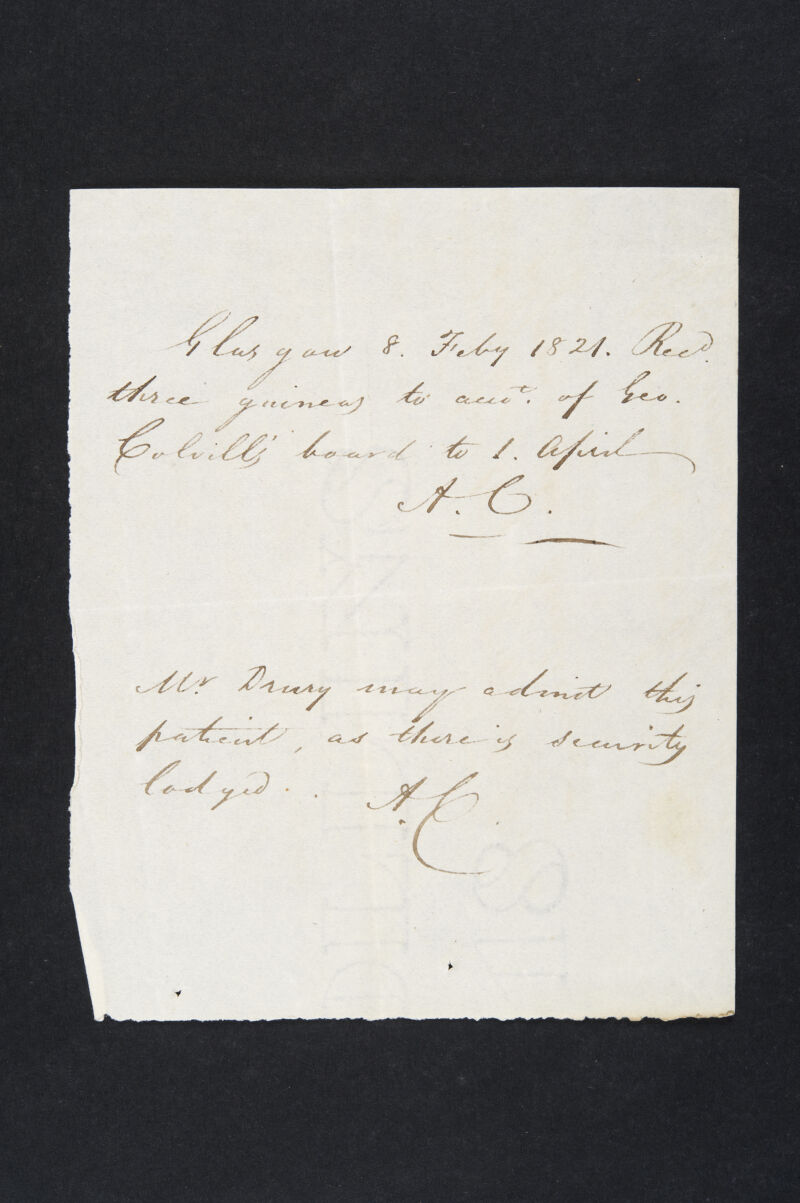 Glasgow 8. Feby 1821. Recd.
three guineas to acct. of Geo.
Colvill's board to 1. April
A. C.
Mr Drury may admit this
patient, as there is security
lodged.. A. C.